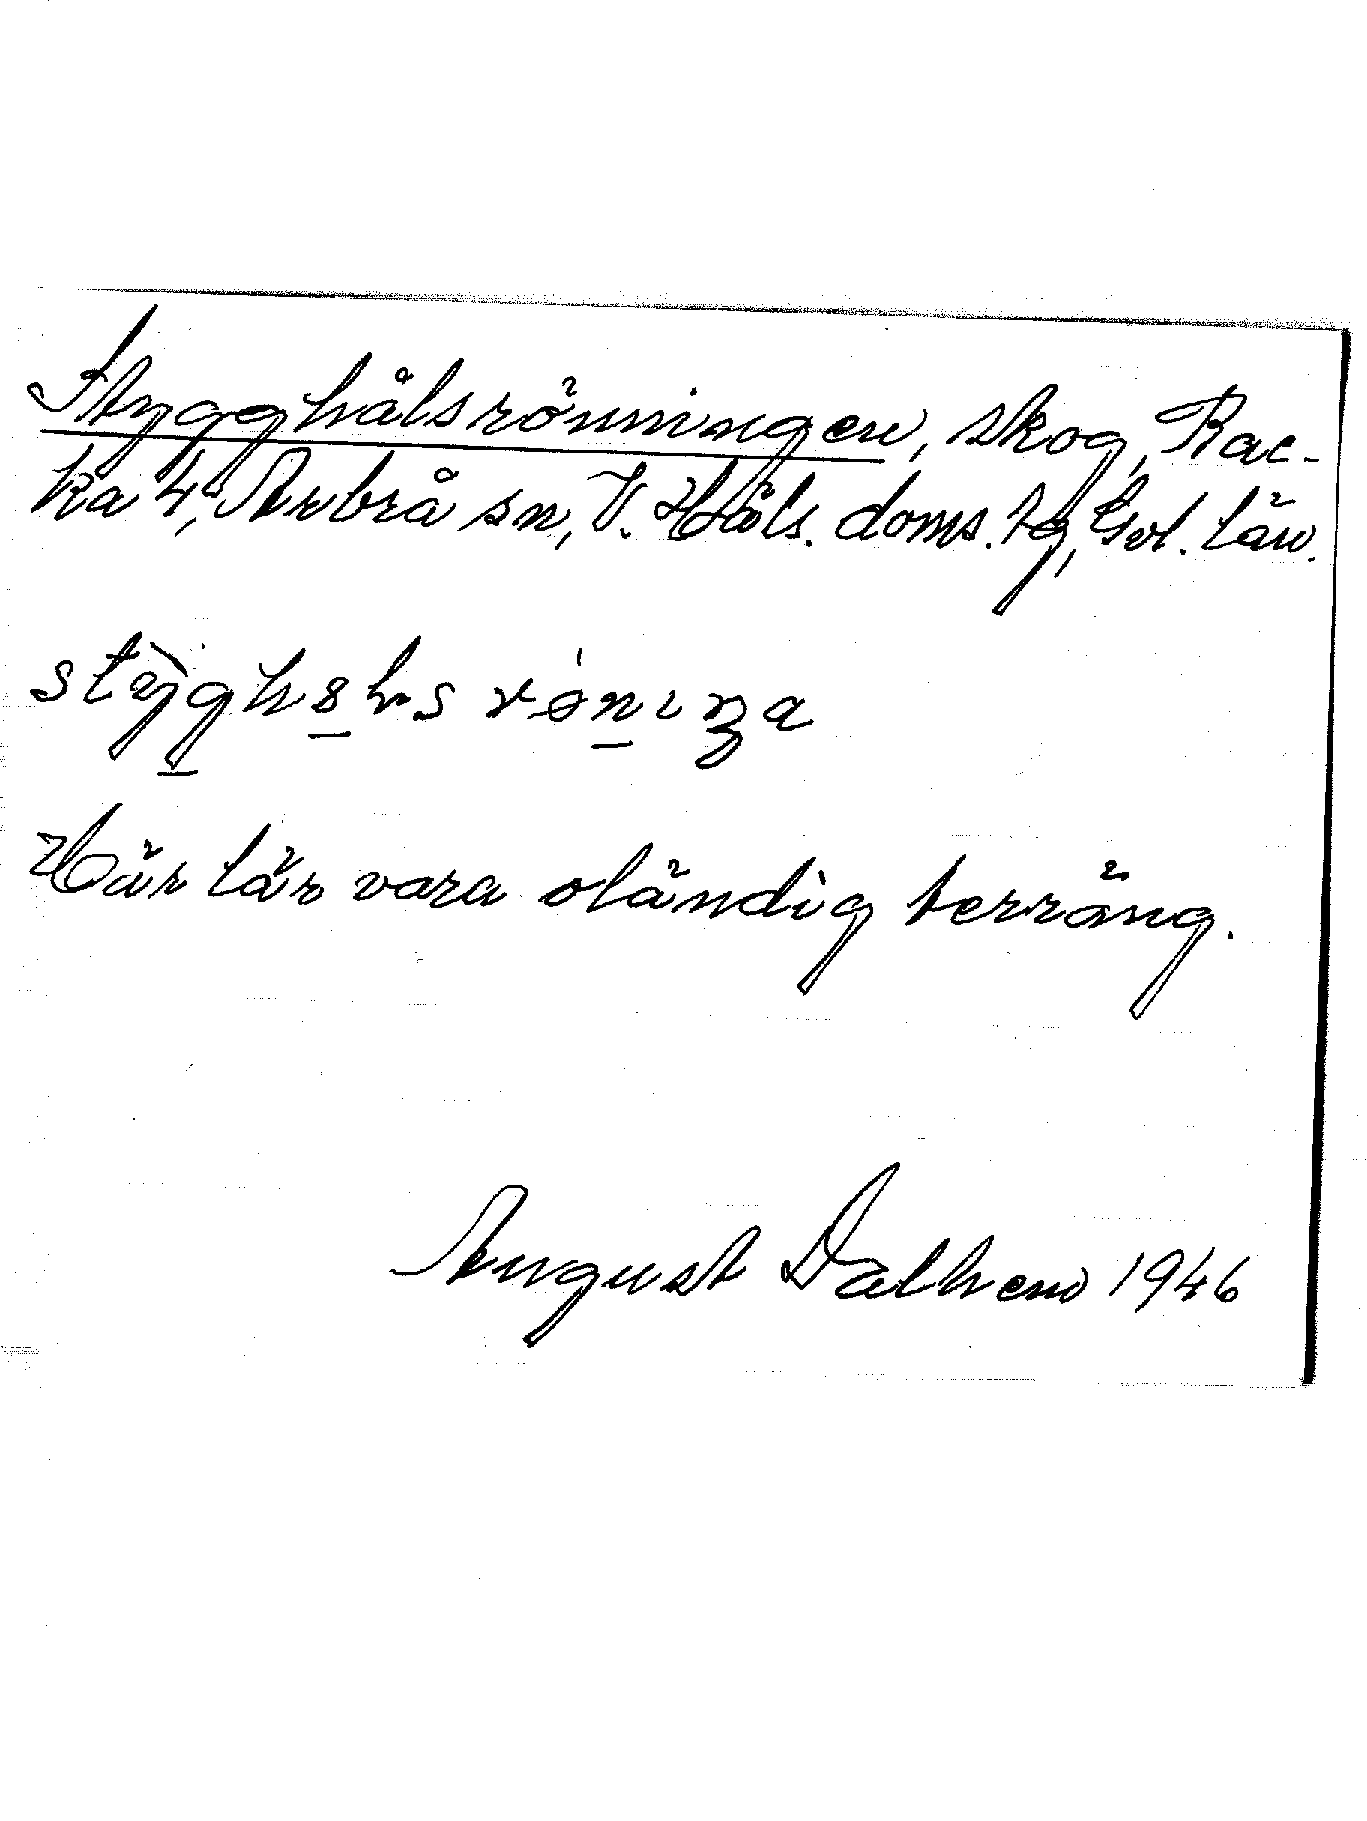 Stygghålsrönningen, skog, Rac-
ka 4, Arbrå sn, V. Häls. doms. tg, Gvl. län.
Här lär vara oländig terräng.
August Dalhem 1946